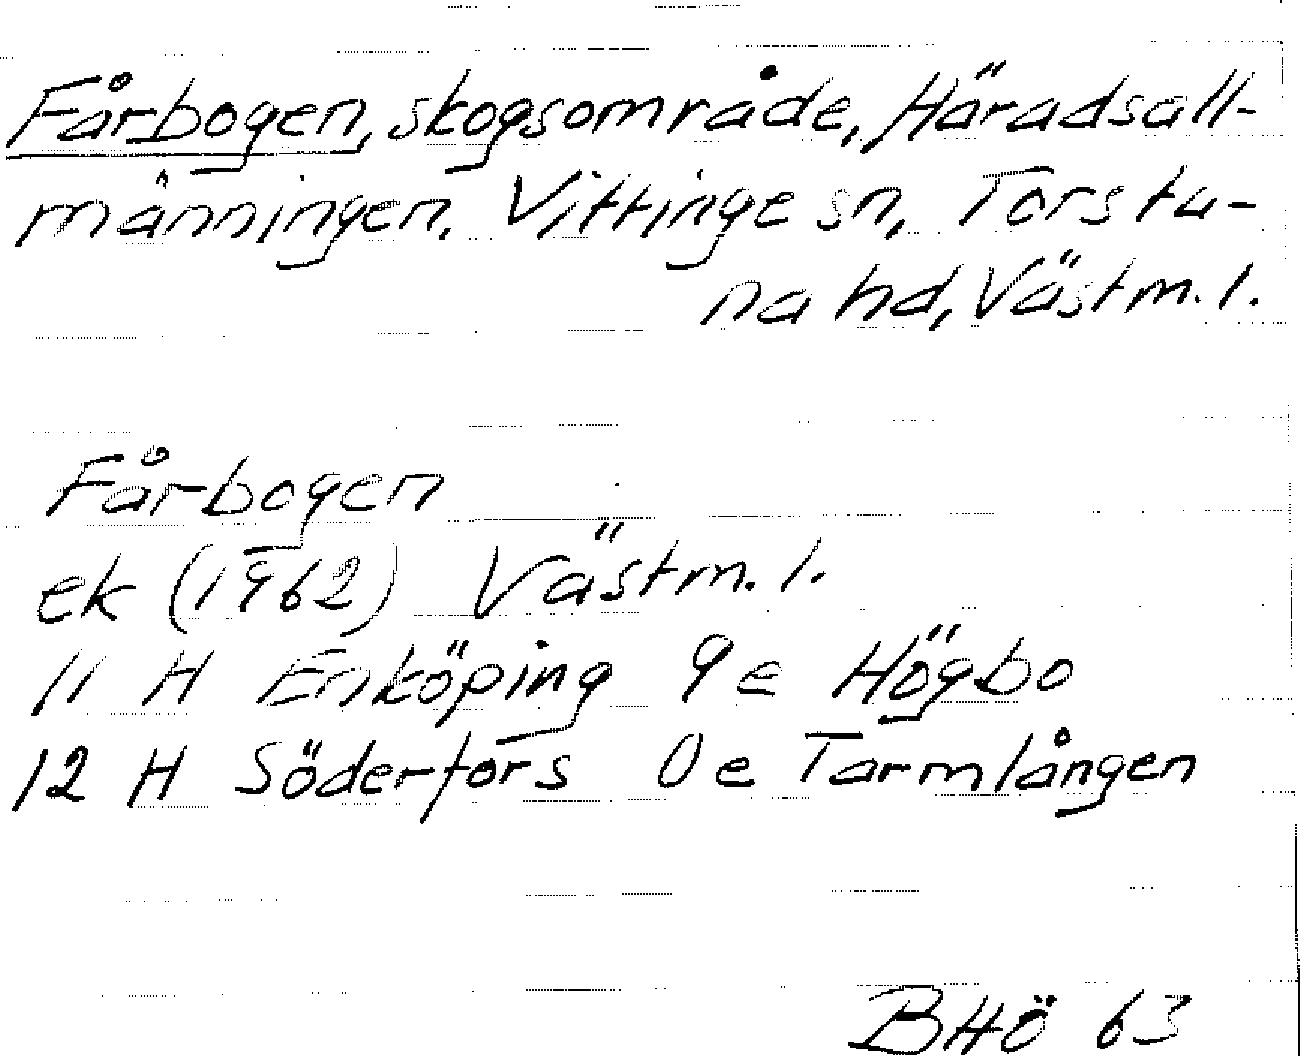 Fårbogen, skogsområde, Häradsall-
männingen, Vittinge sn, Torstu-
na hd, Västm. l.
Fårbogen
ek (1962) Västm. l.
11 H Enköping 9 e Högbo
12 H Söderfors 0 e Tarmlången
BHÖ 63